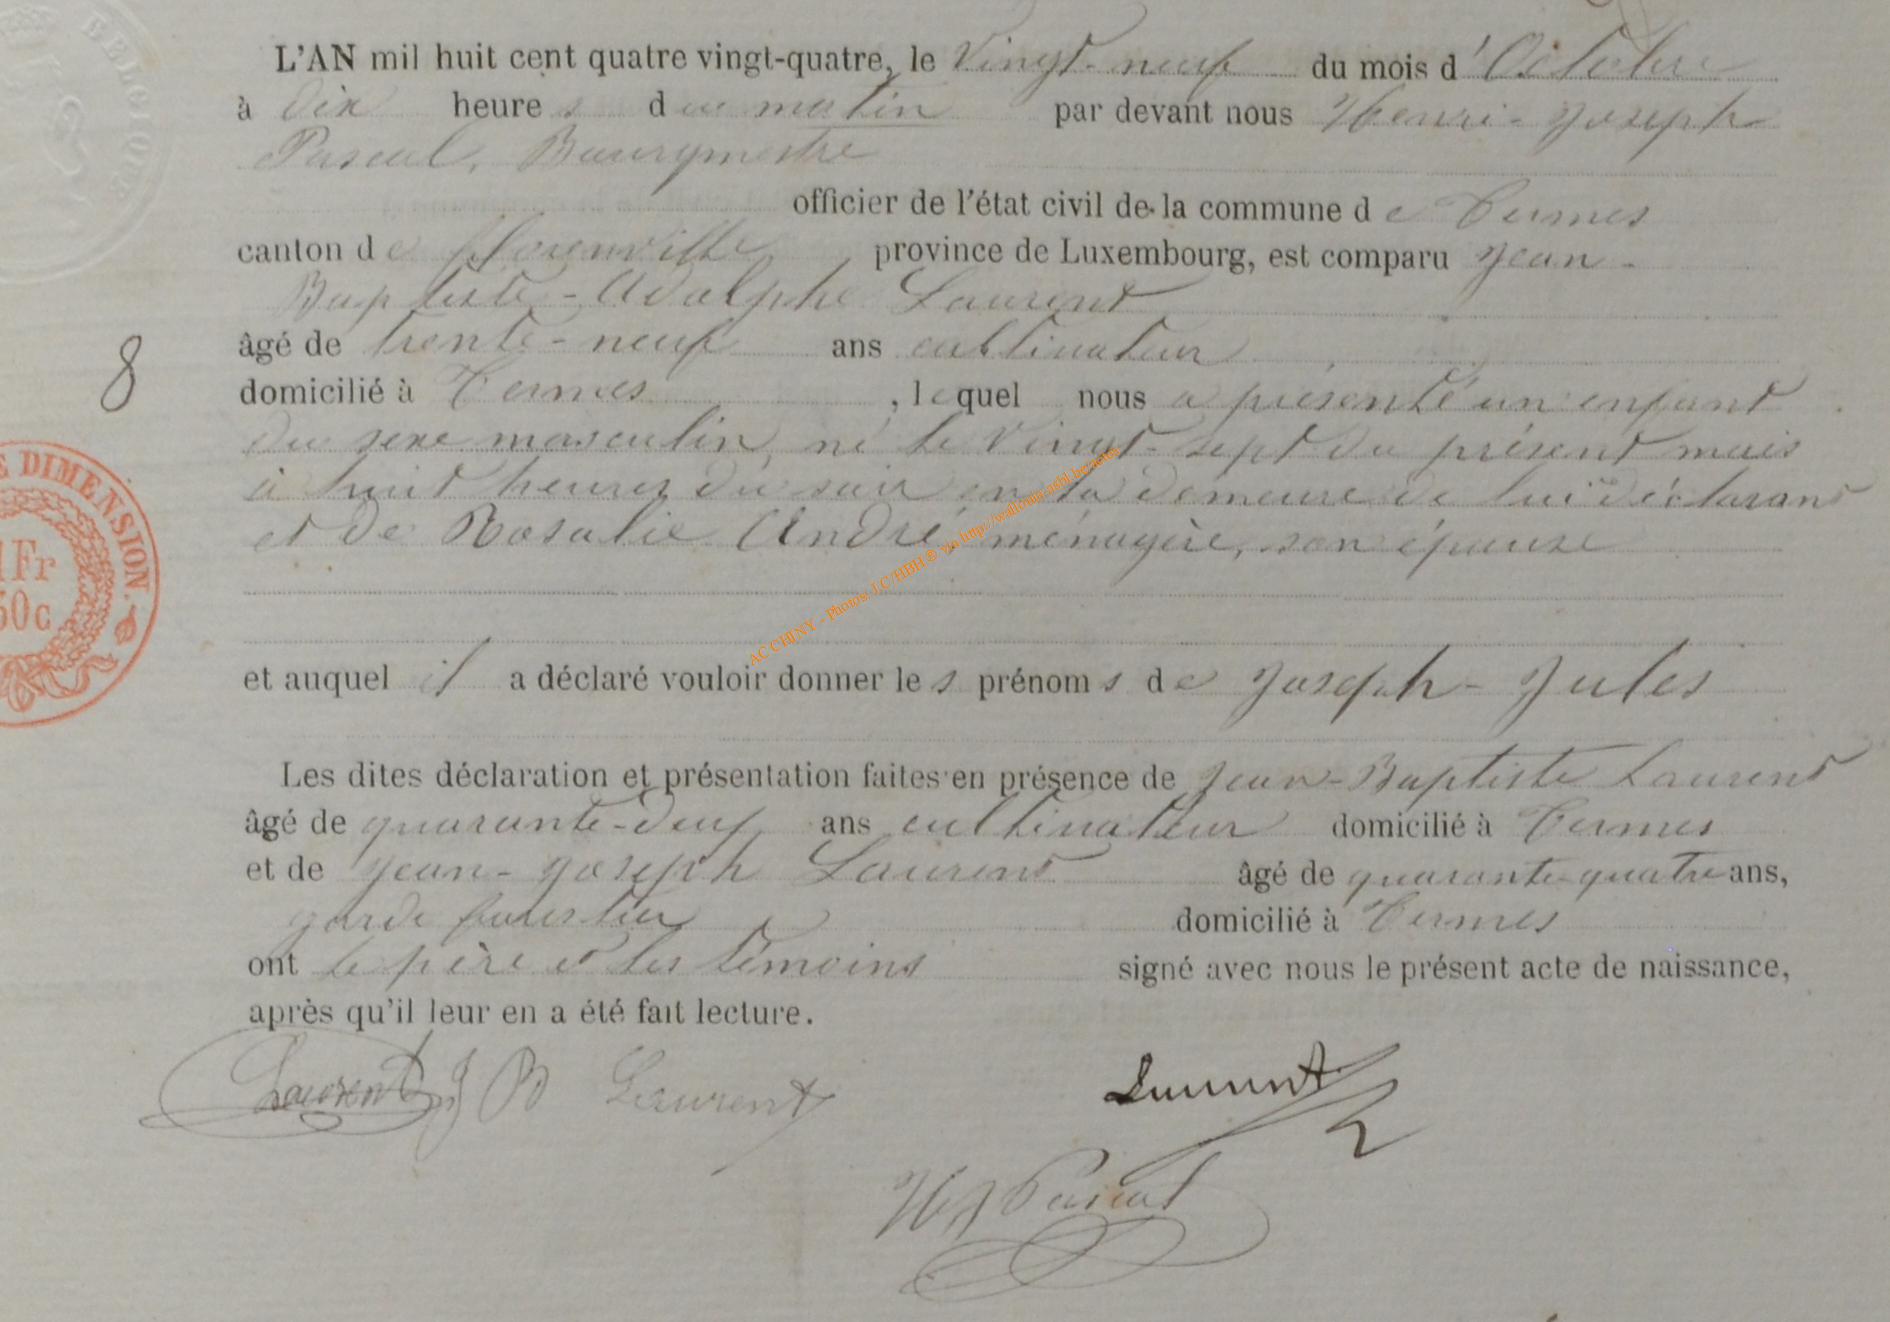 BELGIQUE
L'AN mil huit cent quatre vingt-quatre, le Vingt-neuf du mois d'Octobre
à dix heures du matin par devant nous Henri-Joseph
Pascal, Bourgmestre
officier de l'état civil de la commune de Termes
canton de Florenville province de Luxembourg, est comparu Jean-
Baptiste-Adolphe Laurent
âgé de trente-neuf ans cultivateur
8
domicilié à Termes, lequel nous a présenté un enfant
du sexe masculin, né le vingt-sept du présent mois
à huit heures du soir en la demeure de lui déclarant
et de Rosalie André, ménagère, son épouse
E DIMENSION.
1Fr
50c
AC CHINY - Photos J.C/HBH © via http://wallonia-asbl.be/actes
et auquel il a déclaré vouloir donner les prénoms de Joseph-Jules
Les dites déclaration et présentation faites en présence de Jean-Baptiste Laurent
âgé de quarante-deux ans cultivateur domicilié à Termes
et de Jean-Joseph Laurent âgé de quarante-quatre ans,
garde forestier domicilié à Termes
ont le père et les témoins signé avec nous le présent acte de naissance,
après qu'il leur en a été fait lecture.
Laurent J B Laurent Laurent
HJ Pascal